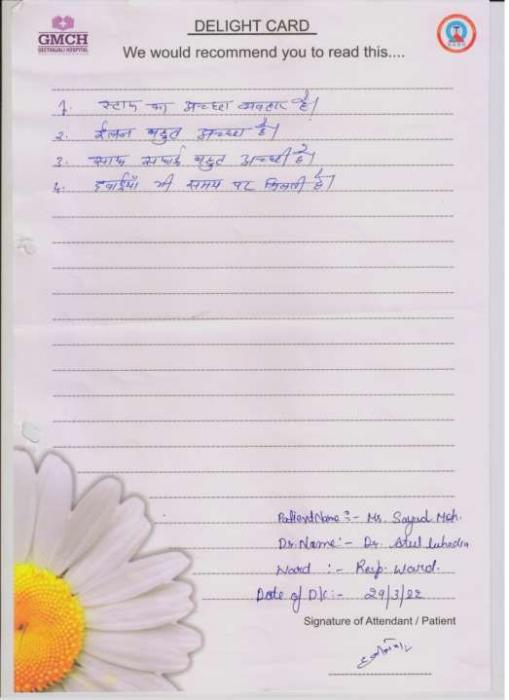 GMCH
GEETANJALI HOSPITAL
DELIGHT CARD
We would recommend you to read this....
1. स्टाफ का अच्छा व्यवहार है।
2. ईलाज बहुत अच्छा है।
3. साफ सफाई बहुत अच्छी है।
4. दवाईयाँ भी समय पर मिलती है।
Patient Name :- Ms. Sayed Meh.
Dr. Name :- Dr. Atul Luhadia
Ward :- Resp. Ward.
Date of D/c :- 29/3/22
Signature of Attendant / Patient